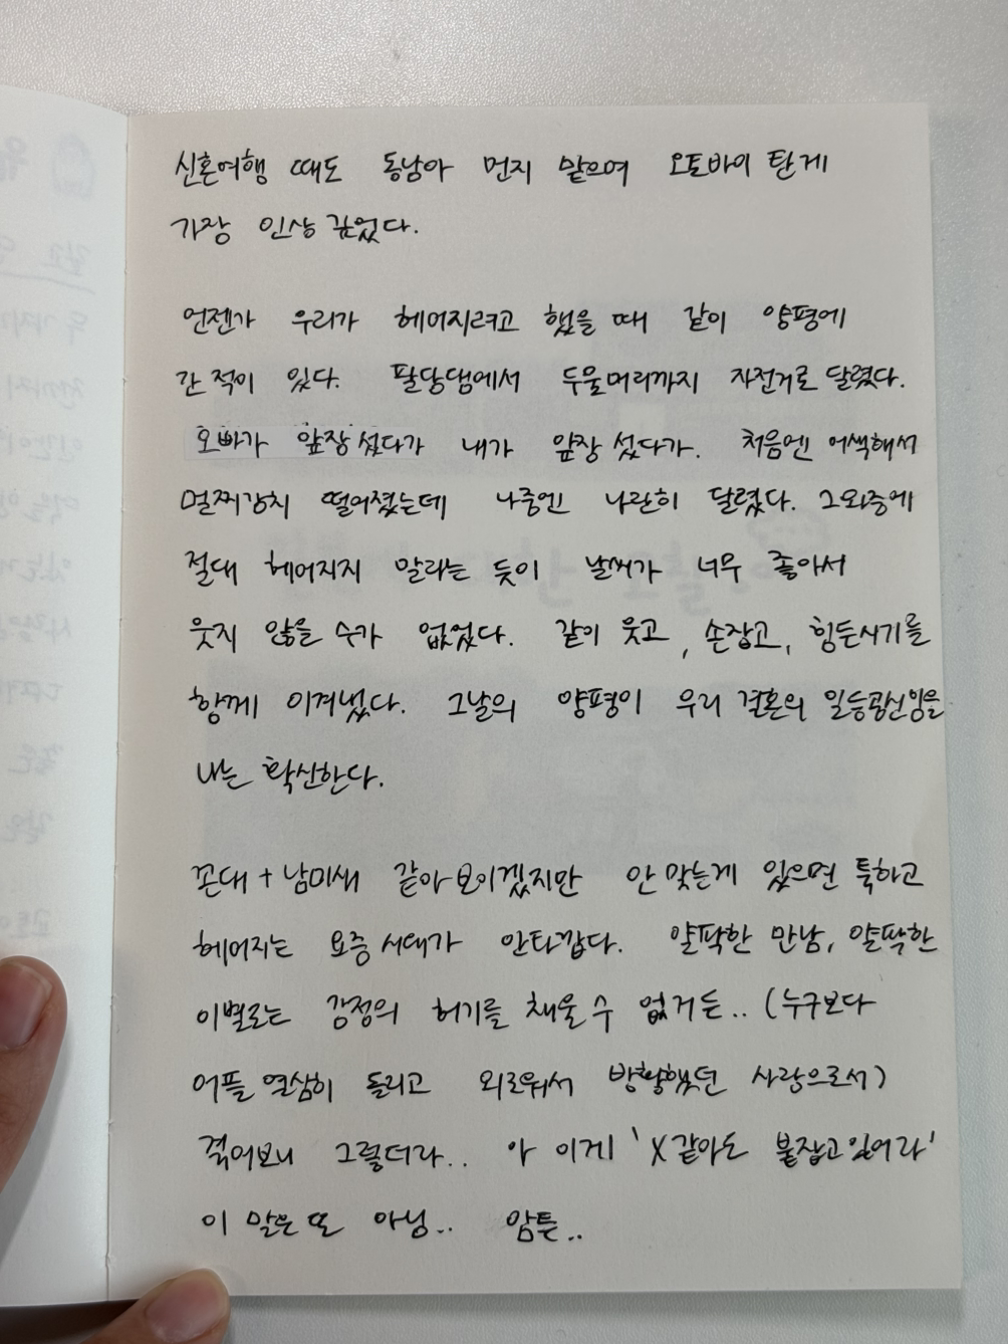 신혼여행 때도 동남아 먼지 맡으며 오토바이 탄게
가장 인상 깊었다.
언젠가 우리가 헤어지려고 했을 때 같이 양평에
간 적이 있다. 팔당댐에서 두물머리까지 자전거로 달렸다.
오빠가 앞장 섰다가 내가 앞장 섰다가. 처음엔 어색해서
멀찌감치 떨어졌는데 나중엔 나란히 달렸다. 그와중에
절대 헤어지지 말라는 듯이 날씨가 너무 좋아서
웃지 않을 수가 없었다. 같이 웃고, 손잡고, 힘든시기를
함께 이겨냈다. 그날의 양평이 우리 결혼의 일등공신임을
나는 확신한다.
꼰대 + 남미새 같아 보이겠지만 안 맞는게 있으면 툭하고
헤어지는 요즘 시대가 안타깝다. 얄팍한 만남, 얄팍한
이별로는 감정의 허기를 채울 수 없거든.. (누구보다
어플 열심히 돌리고 외로워서 방황했던 사람으로서)
겪어보니 그렇더라.. 아 이게 'X같아도 붙잡고있어라'
이 말은 또 아닝.. 암튼..